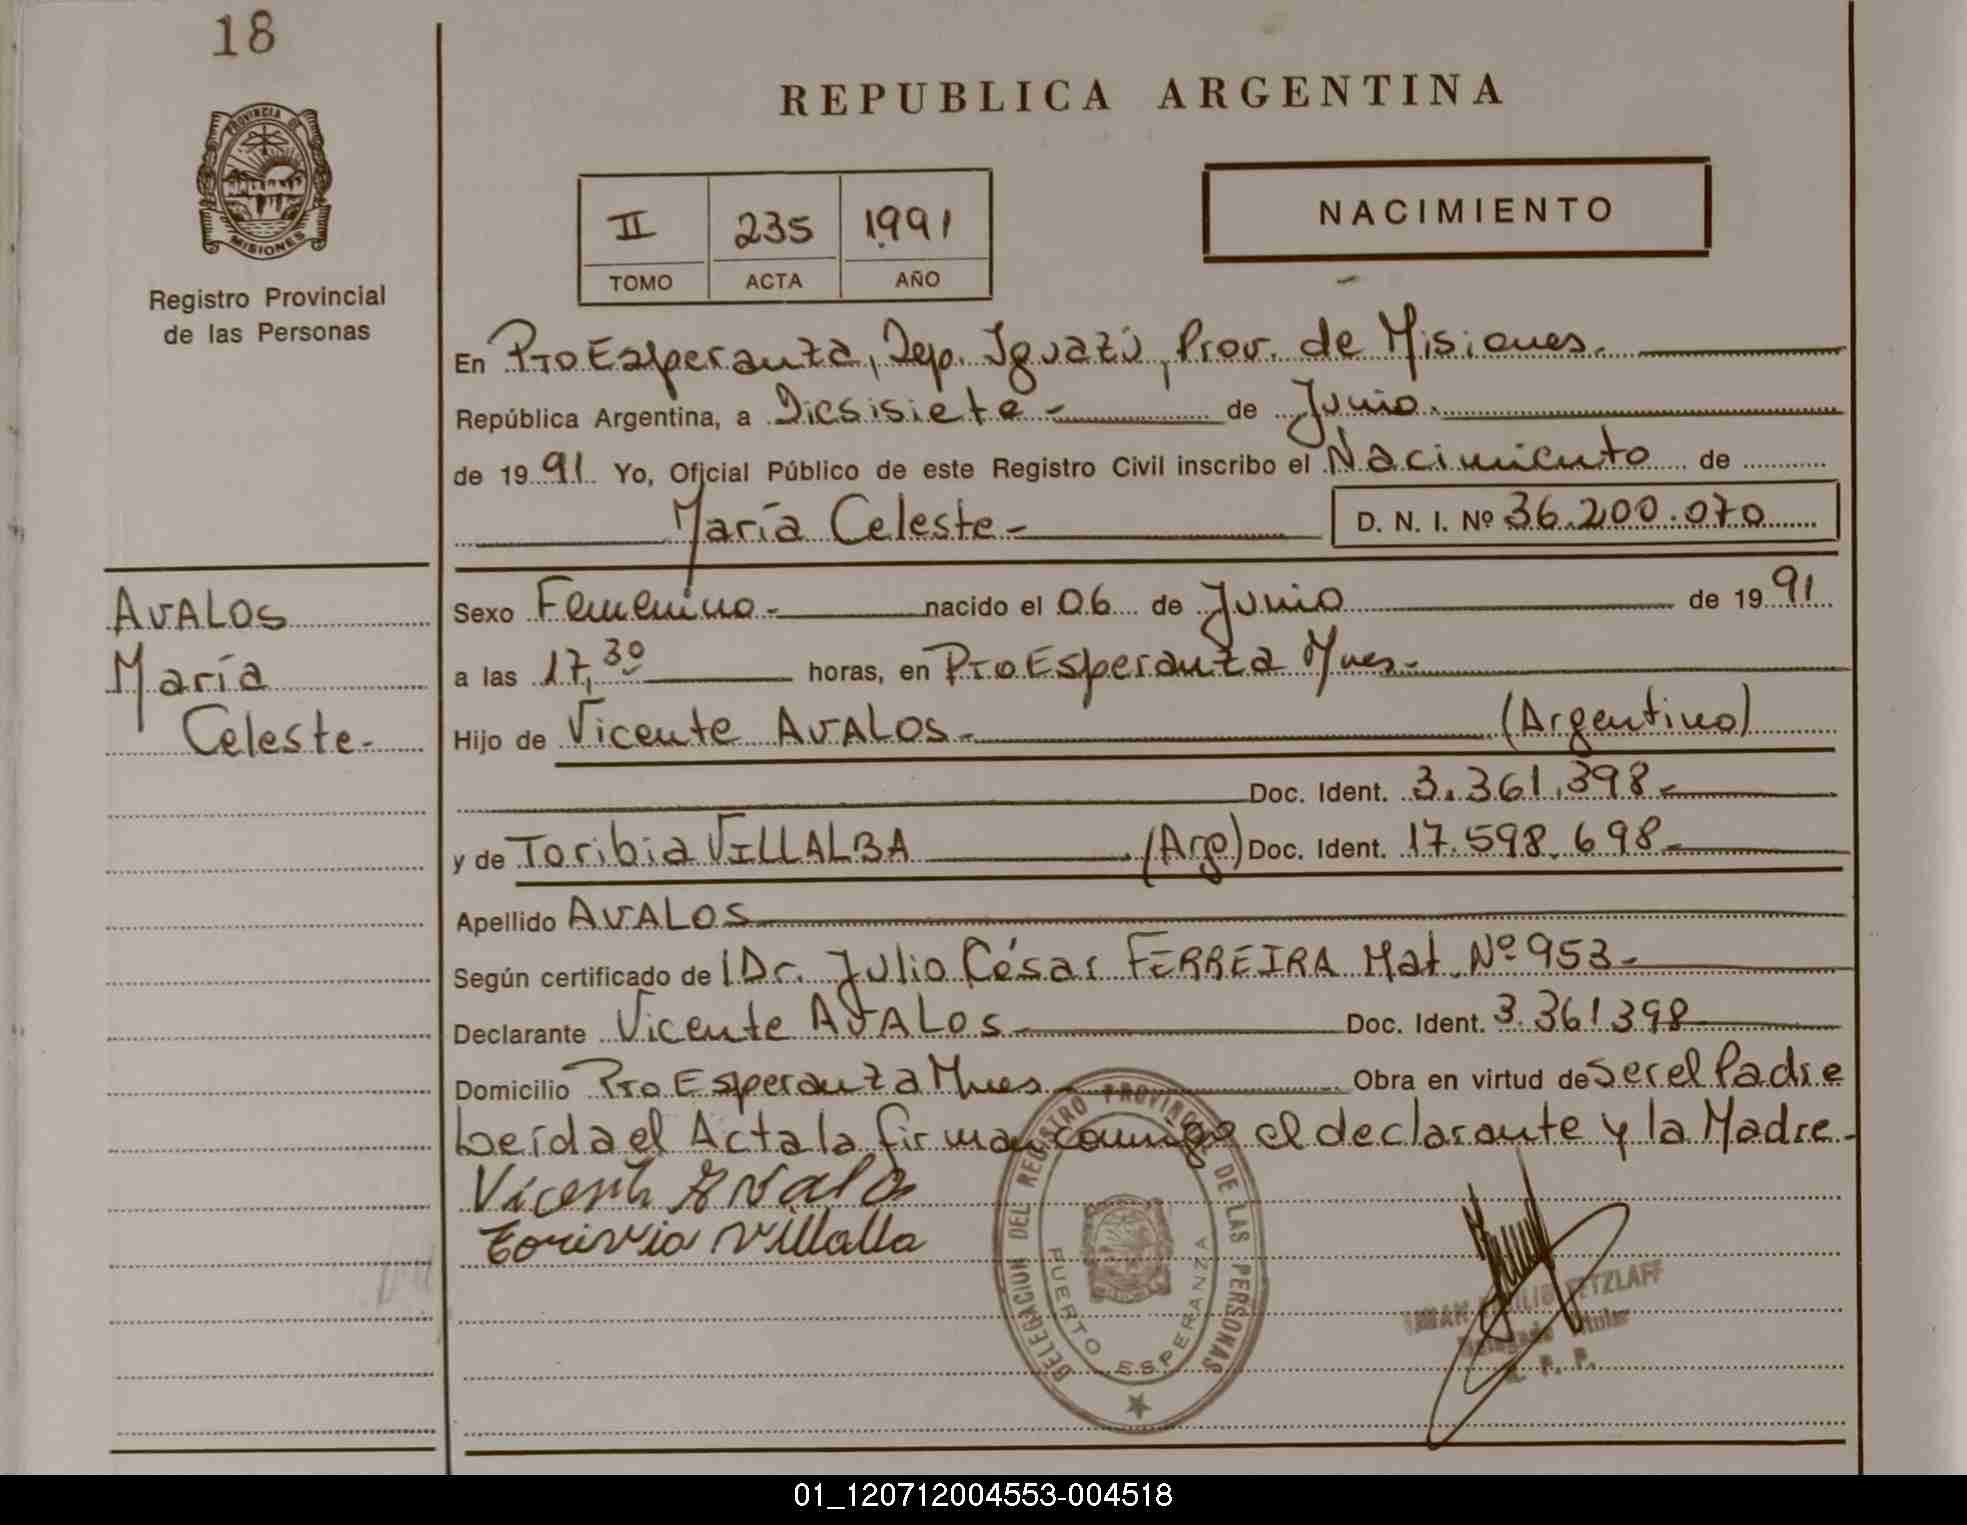 18
PROVINCIA DE
MISIONES
Registro Provincial
de las Personas
REPUBLICA ARGENTINA
II 235 1991
TOMO ACTA AÑO
NACIMIENTO
En Pto Esperanza, Dep. Iguazú, Prov. de Misiones.
República Argentina, a Diesisiete - de Junio.
de 1991. Yo, Oficial Público de este Registro Civil inscribo el Nacimiento de
María Celeste -
D. N. I. Nº 36.200.070
AVALOS
María
Celeste -
Sexo Femenino - nacido el 06 de Junio de 1991
a las 17,30 horas, en Pto Esperanza Mnes -
Hijo de Vicente AVALOS - (Argentino)
Doc. Ident. 3.361.398 -
y de Toribia VILLALBA (Arg) Doc. Ident. 17.598.698 -
Apellido AVALOS
Según certificado de l Dr. Julio César FERREIRA Mat. Nº 953 -
Declarante Vicente AVALOS - Doc. Ident. 3.361398
Domicilio Pto Esperanza Mnes - Obra en virtud de Ser el Padre
Leída el Acta la firman conmigo el declarante y la Madre -
Vicente Avalo
Torivia Villalla
DELEGACION DEL REGISTRO PROVINCIAL DE LAS PERSONAS
PUERTO ESPERANZA
TZLAFF
Delegado Titular
R. P. P.
01_120712004553-004518